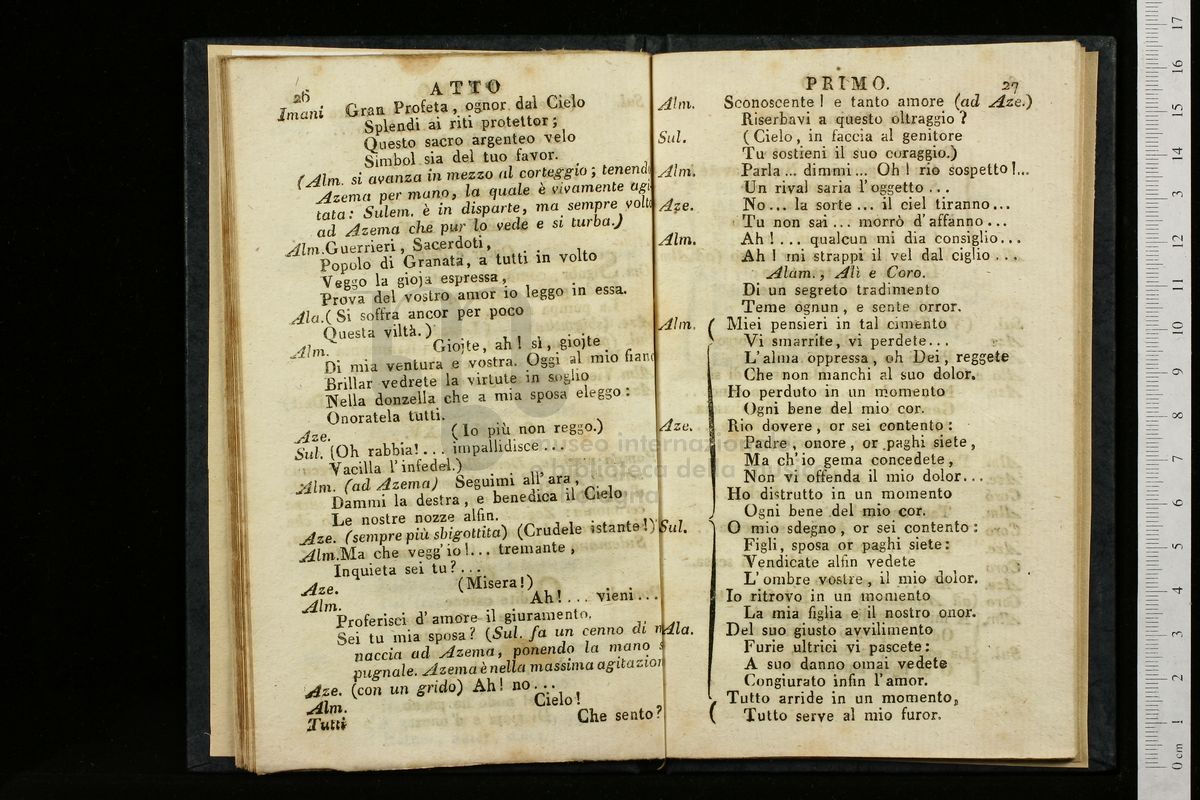 26 ATTO
Imani Gran Profeta, ognor dal Cielo
Splendi ai riti protettor;
Questo sacro argenteo velo
Simbol sia del tuo favor.
(Alm. si avanza in mezzo al corteggio; tenend
Azema per mano, la quale è vivamente agi
tata: Sulem. è in disparte, ma sempre volt
ad Azema che pur lo vede e si turba.)
Alm. Guerrieri, Sacerdoti,
Popolo di Granata, a tutti in volto
Veggo la gioja espressa,
Prova del vostro amor io leggo in essa.
Ala. (Si soffra ancor per poco
Questa viltà.)
Alm. Giojte, ah! sì, giojte
Di mia ventura e vostra. Oggi al mio fianc
Brillar vedrete la virtute in soglio
Nella donzella che a mia sposa eleggo:
Onoratela tutti.
Aze. (Io più non reggo.)
Sul. (Oh rabbia!... impallidisce...
Vacilla l'infedel.)
Alm. (ad Azema) Seguimi all'ara,
Dammi la destra, e benedica il Cielo
Le nostre nozze alfin.
Aze. (sempre più sbigottita) (Crudele istante!)
Alm. Ma che vegg'io!... tremante,
Inquieta sei tu?...
Aze. (Misera!)
Alm. Ah!... vieni...
Proferisci d'amore il giuramento.
Sei tu mia sposa? (Sul. fa un cenno di
naccia ad Azema, ponendo la mano
pugnale. Azema è nella massima agitazion
Aze. (con un grido) Ah! no...
Alm. Cielo!
Tutti Che sento?
PRIMO. 27
Alm. Sconoscente! e tanto amore (ad Aze.)
Riserbavi a questo oltraggio?
Sul. (Cielo, in faccia al genitore
Tu sostieni il suo coraggio.)
Alm. Parla... dimmi... Oh! rio sospetto!...
Un rival saria l'oggetto...
Aze. No... la sorte... il ciel tiranno...
Tu non sai... morrò d'affanno...
Alm. Ah!... qualcun mi dia consiglio...
Ah! mi strappi il vel dal ciglio...
Alam., Alì e Coro.
Di un segreto tradimento
Teme ognun, e sente orror.
Alm. ( Miei pensieri in tal cimento
Vi smarrite, vi perdete...
L'alma oppressa, oh Dei, reggete
Che non manchi al suo dolor.
Ho perduto in un momento
Ogni bene del mio cor.
Aze. Rio dovere, or sei contento:
Padre, onore, or paghi siete,
Ma ch'io gema concedete,
Non vi offenda il mio dolor...
Ho distrutto in un momento
Ogni bene del mio cor.
Sul. O mio sdegno, or sei contento:
Figli, sposa or paghi siete:
Vendicate alfin vedete
L'ombre vostre, il mio dolor.
Io ritrovo in un momento
La mia figlia e il nostro onor.
Ala. Del suo giusto avvilimento
Furie ultrici vi pascete:
A suo danno omai vedete
Congiurato infin l'amor.
Tutto arride in un momento,
( Tutto serve al mio furor.
museo internazionale
e biblioteca della musica
0 cm 1 2 3 4 5 6 7 8 9 10 11 12 13 14 15 16 17